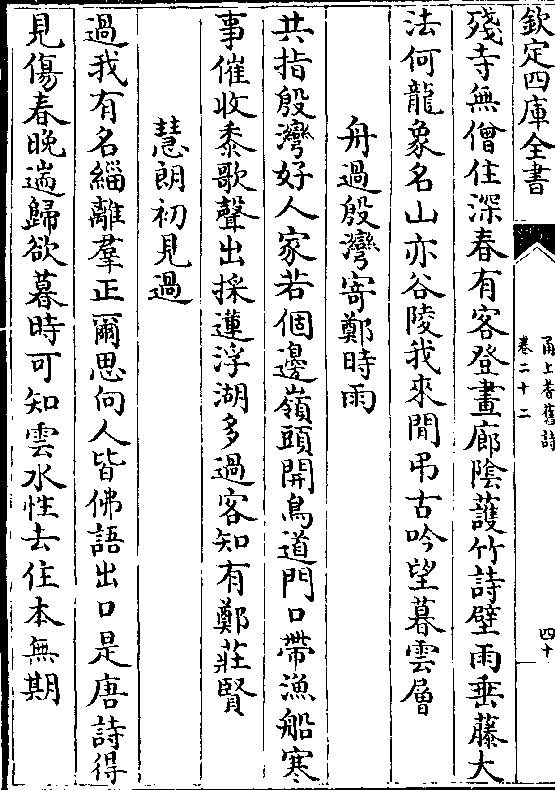 欽定四庫全書
甬上耆舊詩
卷二十二
四十
殘寺無僧住深春有客登畫廊陰護竹詩壁雨垂藤大
法何龍象名山亦谷陵我來閒弔古吟望暮雲層
舟過殷灣寄鄭時雨
共指殷灣好人家若個邊嶺頭開鳥道門口帶漁船寒
事催收黍歌聲出採蓮浮湖多過客知有鄭莊賢
慧朗初見過
過我有名緇離羣正爾思向人皆佛語出口是唐詩得
見傷春晚遄歸欲暮時可知雲水性去住本無期